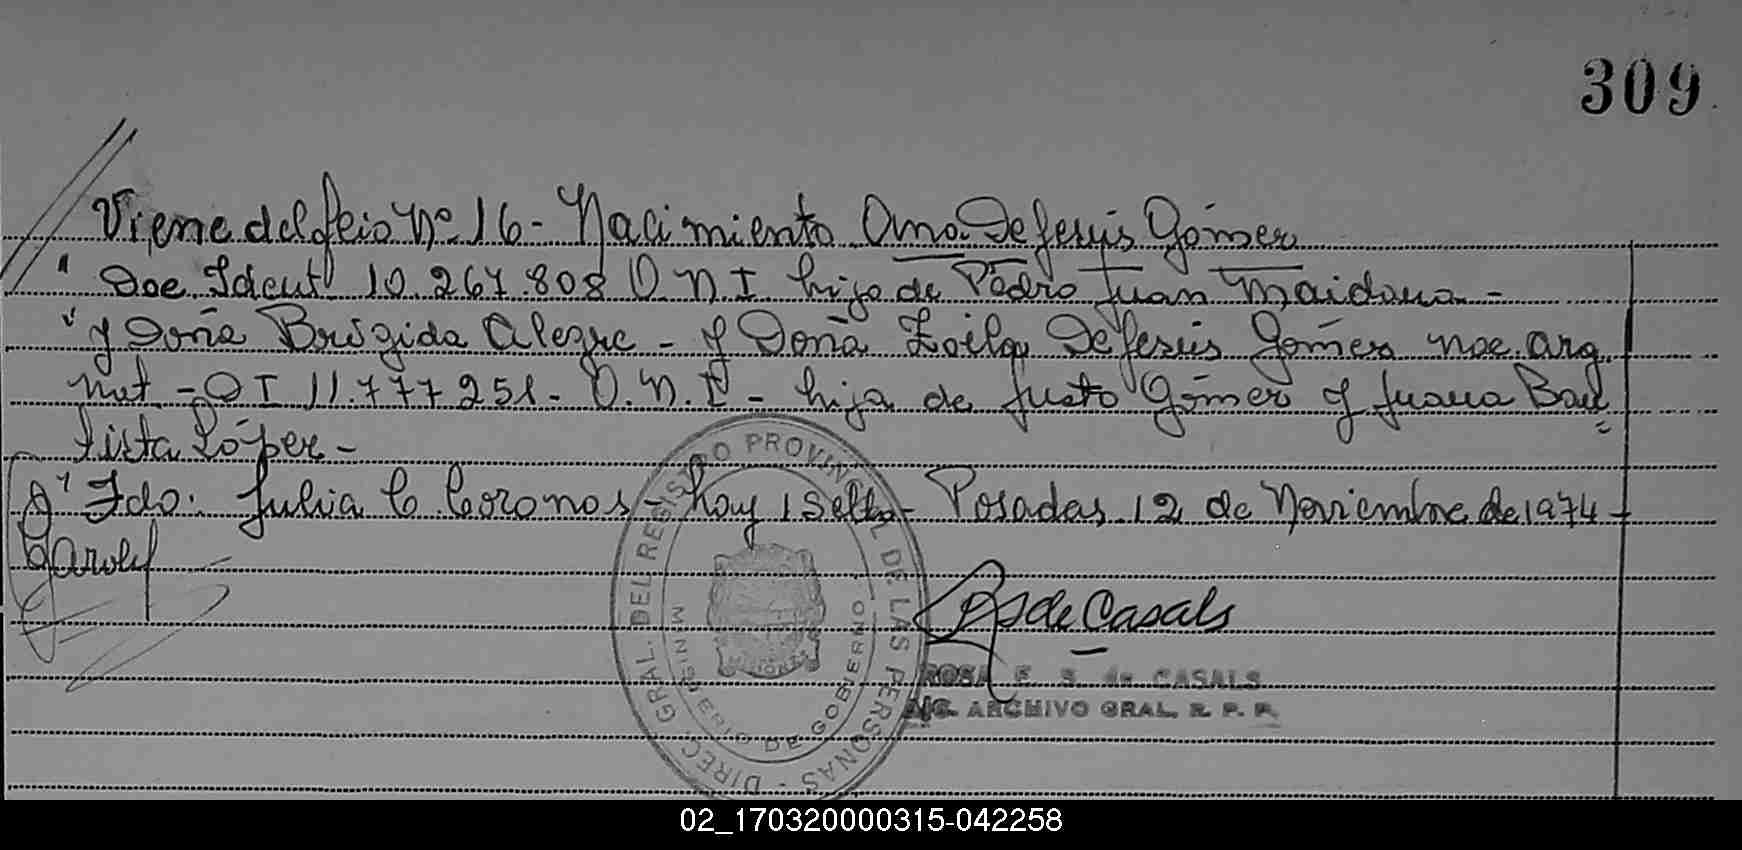 309
Viene del feio Nº 16 - Nacimiento Ana De Jesús Gómez
" Doc Ident 10.267.808 D.N.I. hijo de Pedro Juan Maidana -
" y Doña Brigida Alegre - y Doña Zoila De Jesús Gómez nac. arg.
nat - D I 11.777 251 - D.N.I - hija de Justo Gómez y Juana Bau=
tista López -
Fdo: Julia C Coronos - hay 1 Sello - Posadas 12 de Noviembre de 1974 -
Rs de Casals
ROSA E. S. de CASALS
A/C. ARCHIVO GRAL. R. P. P.
DIREC. GRAL. DEL REGISTRO PROVINCIAL DE LAS PERSONAS -
MINISTERIO DE GOBIERNO
MISIONES
02_170320000315-042258